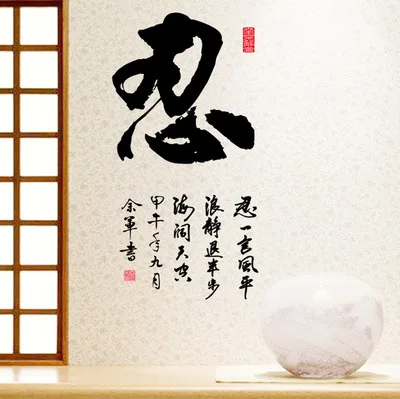 忍
忍一言風平
浪靜退半步
海阔天空
甲午年九月
余軍書